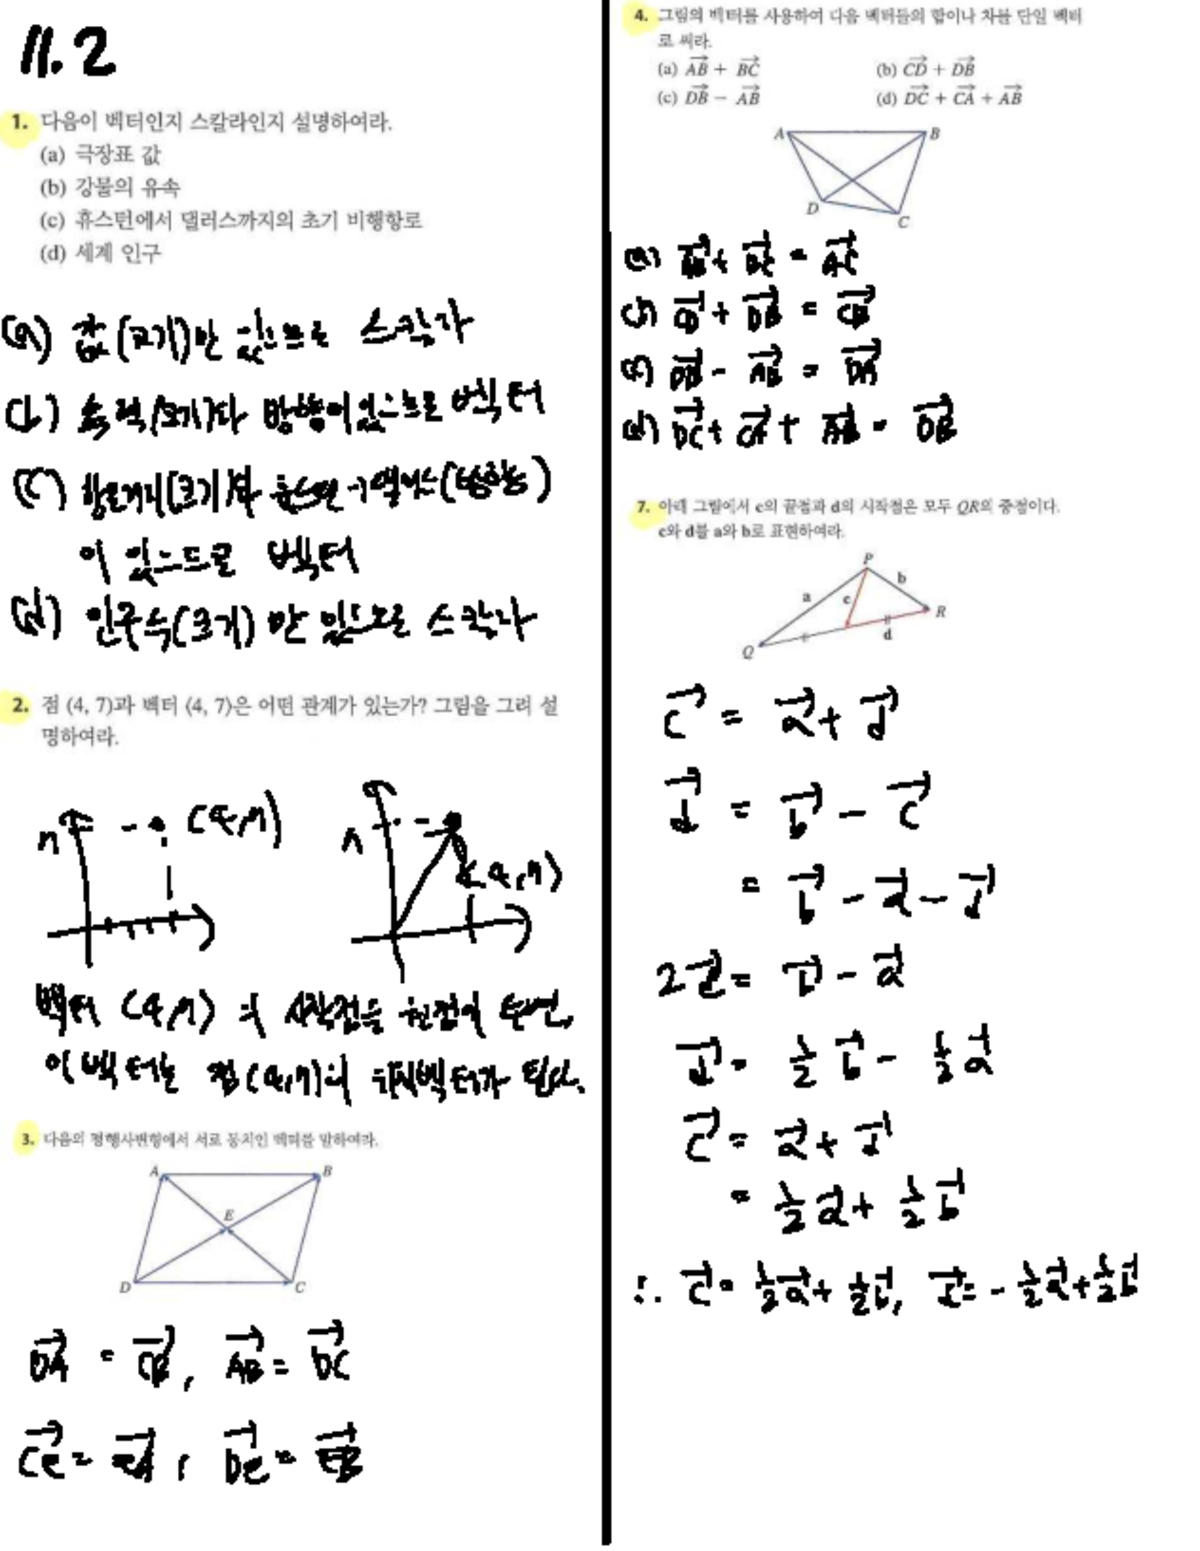 11.2
1. 다음이 벡터인지 스칼라인지 설명하여라.
(a) 극장표 값
(b) 강물의 유속
(c) 휴스턴에서 댈러스까지의 초기 비행항로
(d) 세계 인구
(a) 값(크기)만 있으므로 스칼라
(b) 속력(크기)과 방향이 있으므로 벡터
(c) 항로거리(크기)와 휴스턴→댈러스(방향)
이 있으므로 벡터
(d) 인구수(크기)만 있으므로 스칼라
2. 점 (4, 7)과 벡터 ⟨4, 7⟩은 어떤 관계가 있는가? 그림을 그려 설
명하여라.
7 (4,7)
7 <4,7>
벡터 <4,7>의 시작점을 원점에 두면,
이 벡터는 점(4,7)의 위치벡터가 된다.
3. 다음의 평행사변형에서 서로 동치인 벡터를 말하여라.
A B
E
D C
DA→ = CB→, AB→ = DC→
CE→ = EA→, DE→ = EB→
4. 그림의 벡터를 사용하여 다음 벡터들의 합이나 차를 단일 벡터
로 써라.
(a) AB→ + BC→ (b) CD→ + DB→
(c) DB→ − AB→ (d) DC→ + CA→ + AB→
A B
D C
(a) AB→ + BC→ = AC→
(b) CD→ + DB→ = CB→
(c) DB→ − AB→ = DA→
(d) DC→ + CA→ + AB→ = DB→
7. 아래 그림에서 c의 끝점과 d의 시작점은 모두 QR의 중점이다.
c와 d를 a와 b로 표현하여라.
P
a b
c
R
d
Q
c→ = a→ + d→
d→ = b→ − c→
= b→ − a→ − d→
2d→ = b→ − a→
d→ = ½ b→ − ½ a→
c→ = a→ + d→
= ½ a→ + ½ b→
∴ c→ = ½ a→ + ½ b→, d→ = −½ a→ + ½ b→